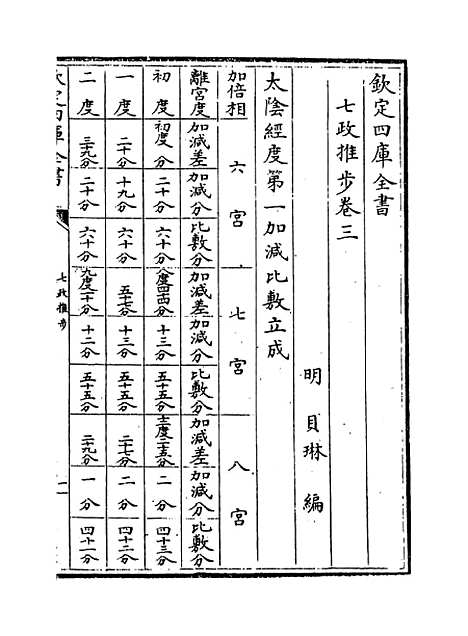 欽定四庫全書
七政推步卷三
明 貝琳 編
太陰經度第一加減比敷立成
加倍相 六宮 七宮 八宮
離宮度 加減差 加減分 比敷分 加減差 加減分 比敷分 加減差 加減分 比敷分
初度 初度分 二十分 六十分 八度四十四分 十三分 五十五分 十二度二十五分 二分 四十三分
一度 二十分 十九分 六十分 五十七分 十三分 五十五分 二十七分 二分 四十二分
二度 三十九分 二十分 六十分 九度一十分 十二分 五十五分 二十九分 一分 四十一分
欽定四庫全書
七政推步
一